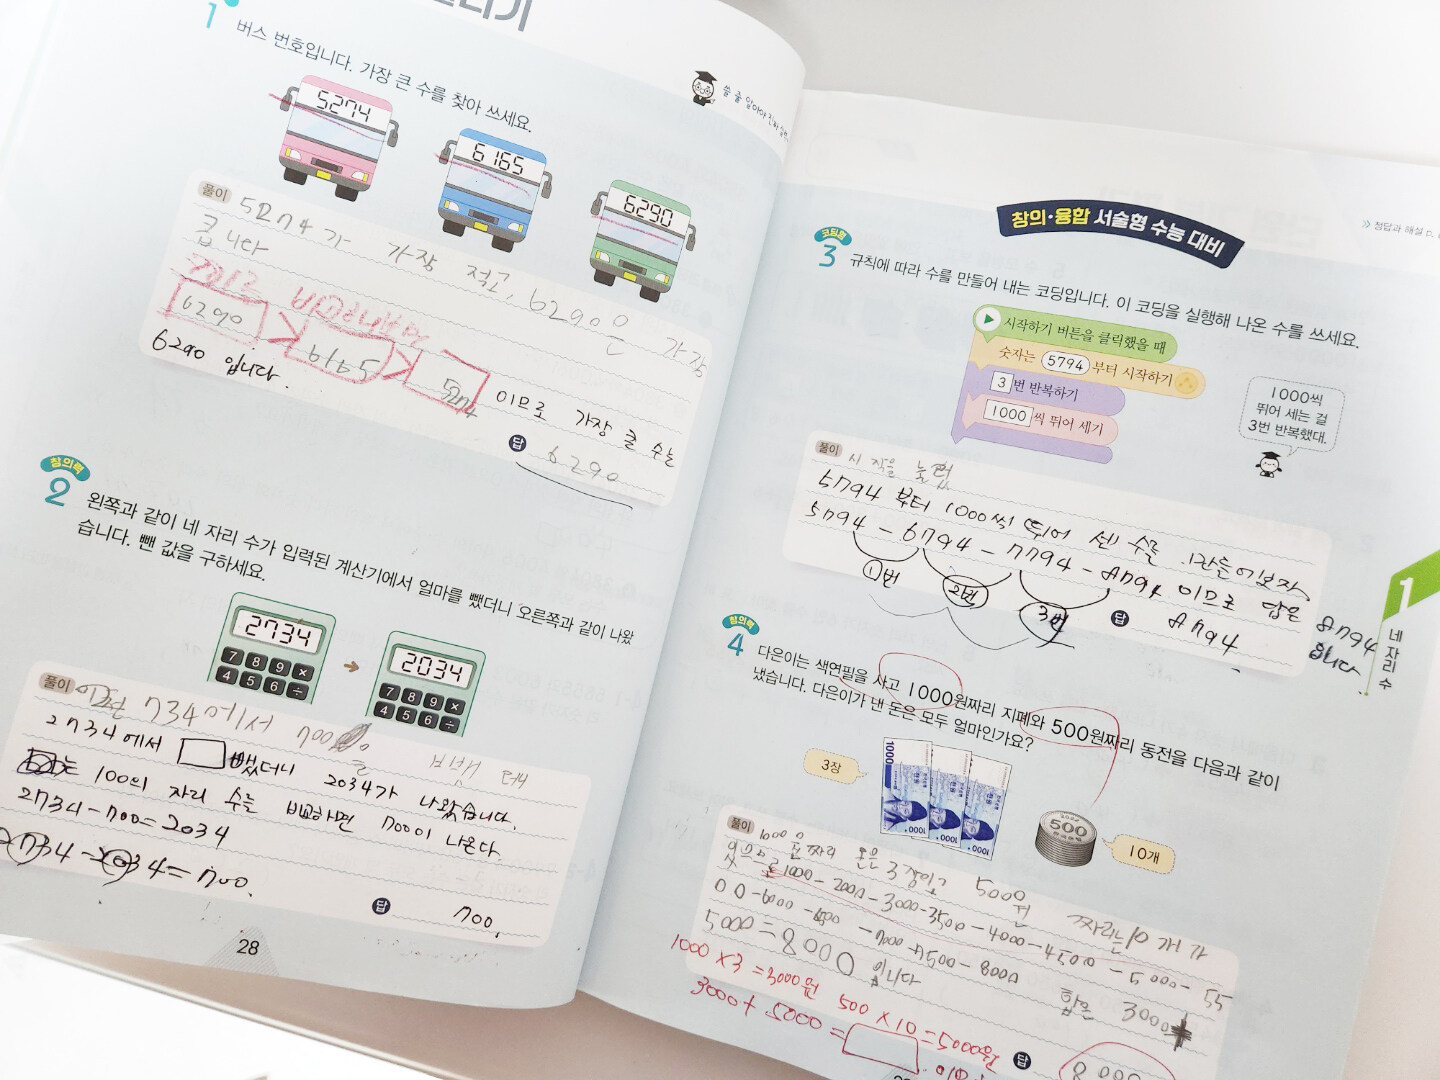 1
버스 번호입니다. 가장 큰 수를 찾아 쓰세요.
5274
6165
6290
풀이
5274가 가장 적고, 6290은 가장
큽니다
6290 > 6165 > 5274 이므로 가장 큰 수는
6290 입니다.
답 6290
창의력
2
왼쪽과 같이 네 자리 수가 입력된 계산기에서 얼마를 뺐더니 오른쪽과 같이 나왔
습니다. 뺀 값을 구하세요.
2734
2034
7 8 9 ×
4 5 6 ÷
7 8 9 ×
4 5 6 ÷
풀이
734에서 700을
2734에서 □ 뺐더니 2034가 나왔습니다.
100의 자리 수를 비교하면 700이 나온다.
2734-700=2034
2734-2034=700.
답 700.
28
정답과 해설
창의·융합 서술형 수능 대비
코딩형
3
규칙에 따라 수를 만들어 내는 코딩입니다. 이 코딩을 실행해 나온 수를 쓰세요.
시작하기 버튼을 클릭했을 때
숫자는 5794 부터 시작하기
3 번 반복하기
1000 씩 뛰어 세기
1000씩
뛰어 세는 걸
3번 반복했대.
풀이
시작을 눌렀
5794 부터 1000씩 뛰어 센 수를 만들어보자.
5794 - 6794 - 7794 - 8794 이므로 답은 8794
입니다.
①번
②번
3번
답 8794
1
네 자리 수
창의력
4
다은이는 색연필을 사고 1000원짜리 지폐와 500원짜리 동전을 다음과 같이
냈습니다. 다은이가 낸 돈은 모두 얼마인가요?
3장
1000
500
10개
풀이
1000-2000-3000-3500-4000-4500-5000-55
00-6000-6500-7000-7500-8000 합은 3000+
5000=8000 입니다
1000×3=3000원 500×10=5000원
3000+5000=
답 8000